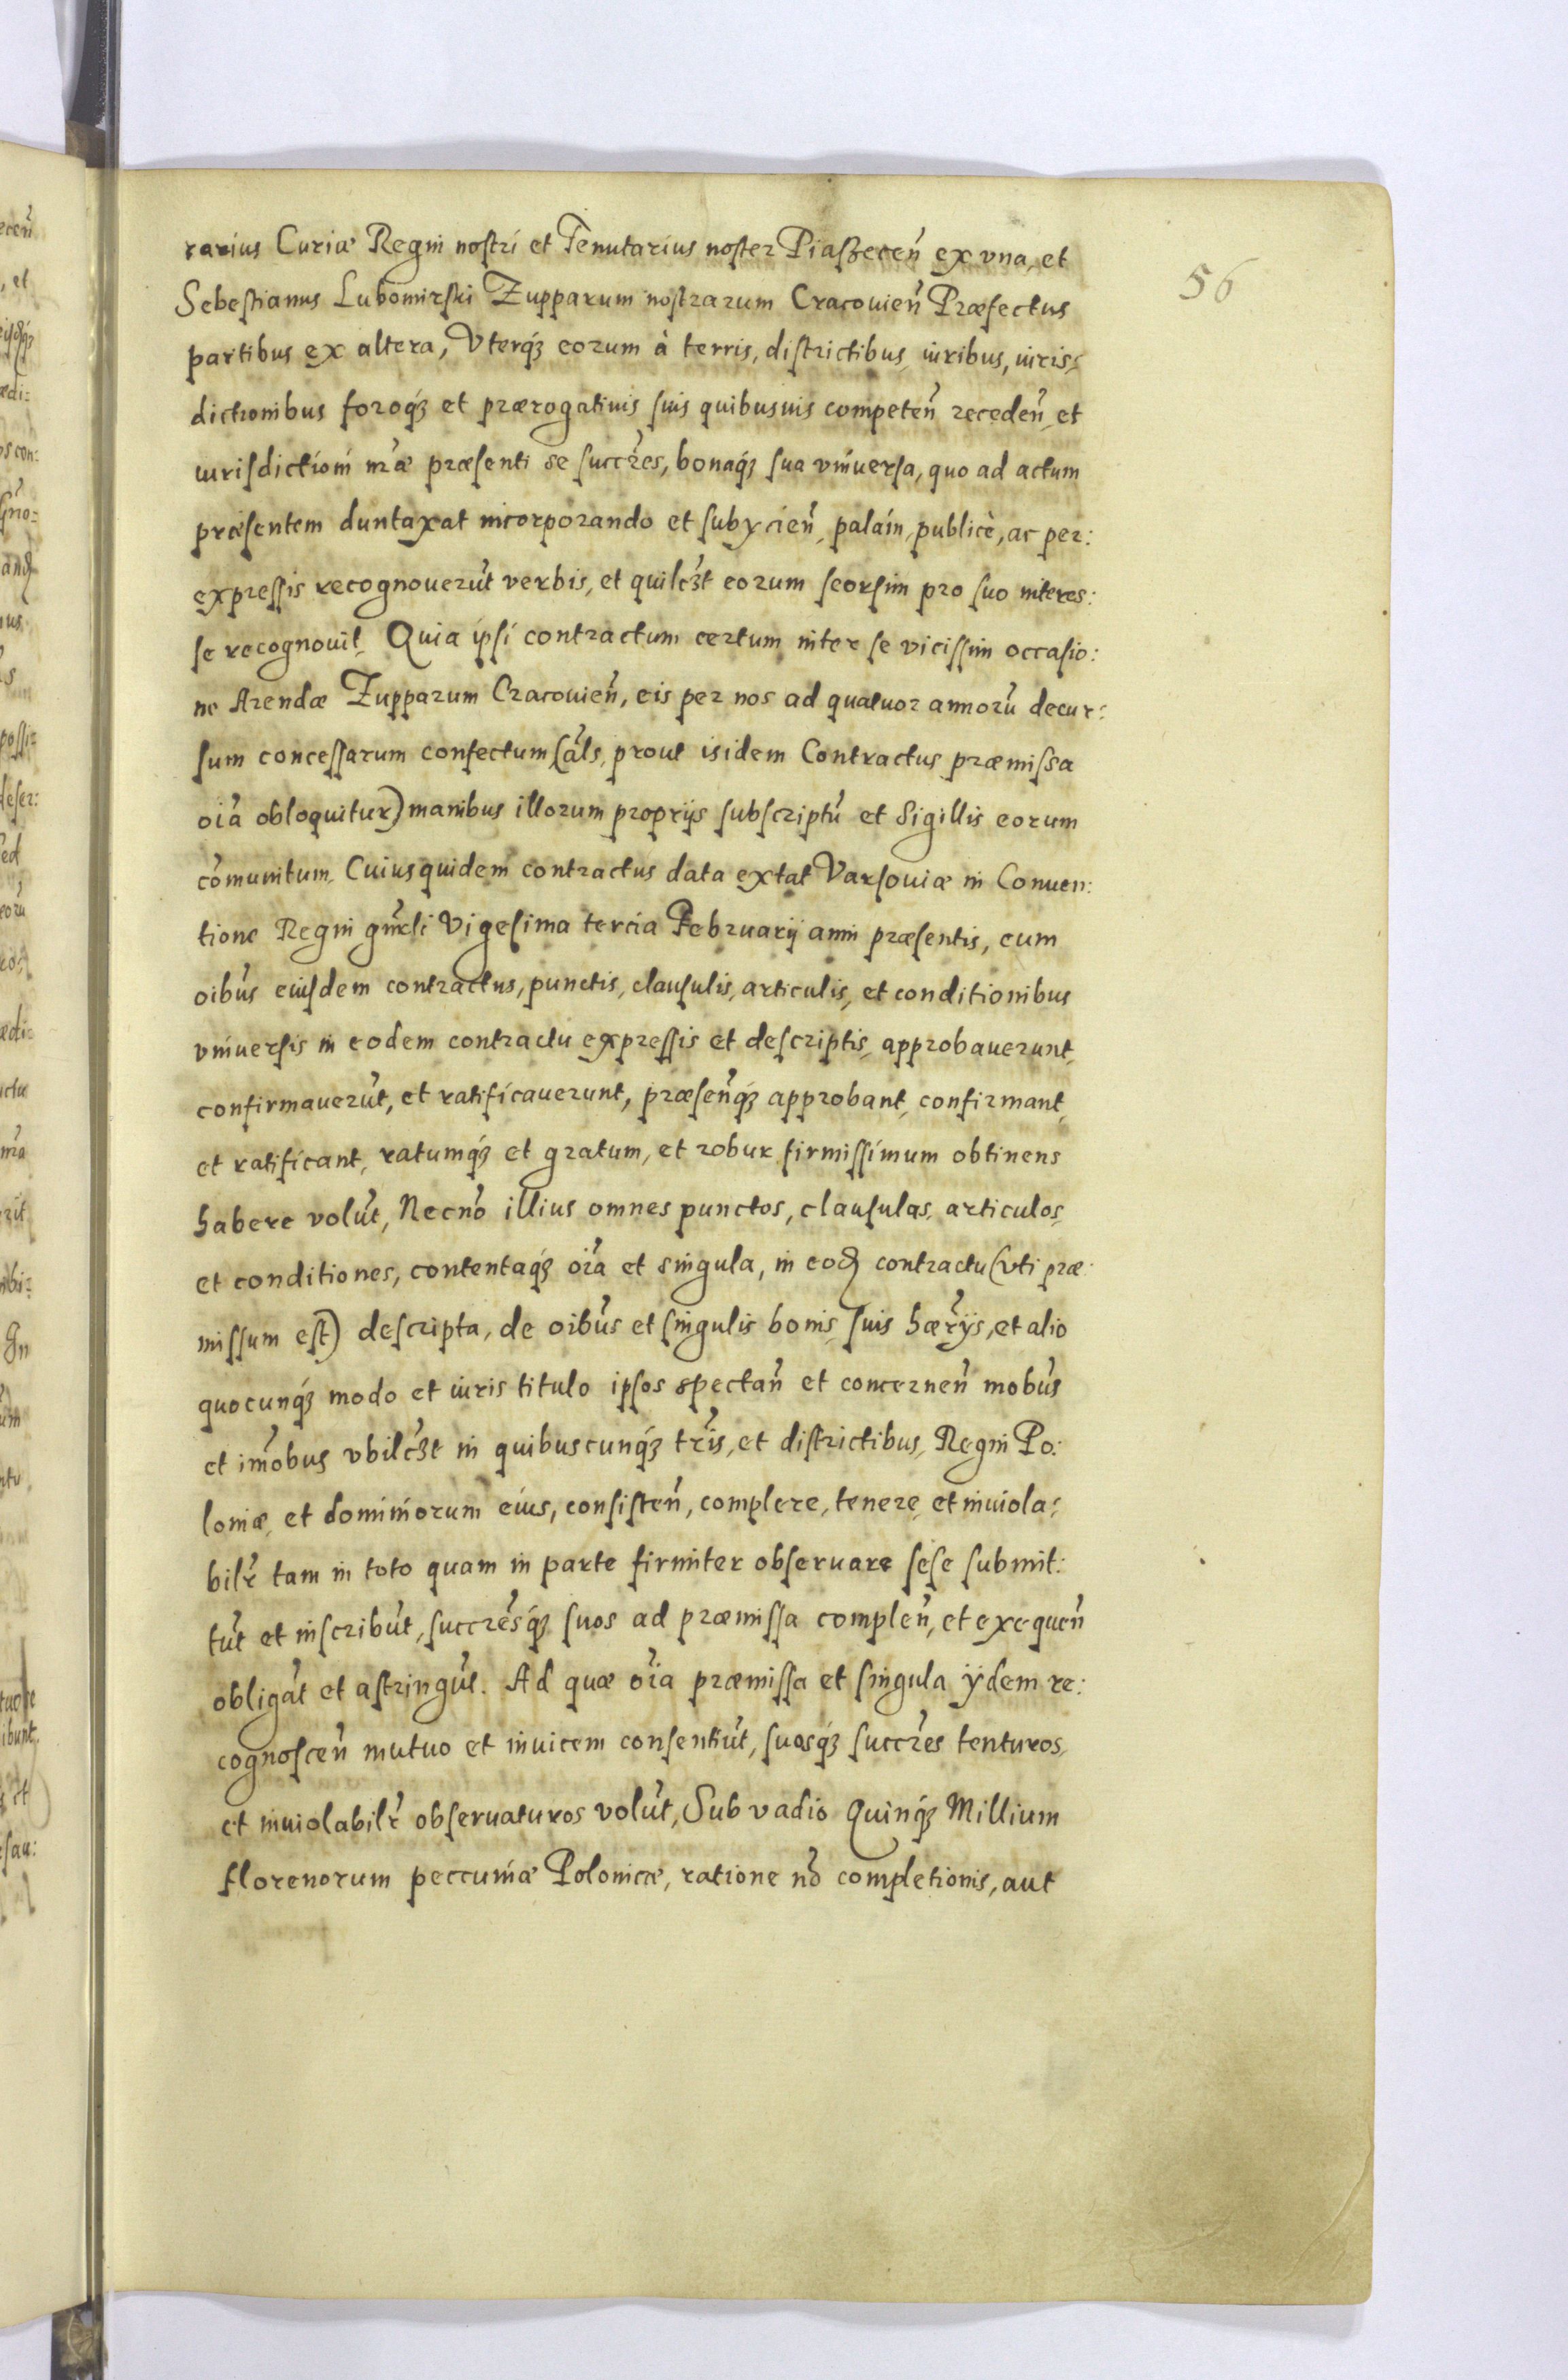 56
rarius Curiæ Regni nostri et Tenutarius noster Piaszecen̄ ex vna, et
Sebestianus Lubomirski Zupparum nostrarum Cracouien̄ Præfectus
partibus ex altera, Vterq́ȝ eorum à terris, districtibus, iuribus, iuris,
dictionibus foroq́ȝ et prærogatiuis suis quibusuis competen̄ receden̄, et
iurisdictioni nr̃æ præsenti se succr̃es, bonaq́ȝ sua vniuersa, quo ad actum
præsentem duntaxat incorporando et subycien̄, palam, publicè, ac per:
expressis recognouerūt verbis, et quilc̃ȝt eorum seorsim pro suo interes:
se recognouit, Quia ipsi contractum certum inter se vicissim occasio:
ne Arendæ Zupparum Cracouien̄, eis per nos ad quatuor annorū decur:
sum concessarum confectum (āls, prout isidem Contractus præmissa
oīa obloquitur) manibus illorum proprijs subscriptū et Sigillis eorum
cōmunitum, Cuiusquidem contractus data extat Varsouiæ in Conuen:
tione Regni gn̄rli Vigesima tercia Februarij anni præsentis, cum
oibūs eiusdem contractus, punctis, clausulis, articulis, et conditionibus
vniuersis in eodem contractu expressis et descriptis, approbauerunt,
confirmauerūt, et ratificauerunt, præsen̄q́ȝ approbant, confirmant,
et ratificant, ratumq́ȝ et gratum, et robur firmissimum obtinens
habere volūt, Necnō illius omnes punctos, clausulas, articulos,
et conditiones, contentaq́ȝ oīa et singula, in eod̄ contractu (vti præ:
missum est) descripta, de oibūs et singulis bonis suis hær̃ijs, et alio
quocunq́ȝ modo et iuris titulo ipsos spectan̄ et concernen̄ mobūs
et im̄obus vbilc̃ȝt in quibuscunq́ȝ tr̃is, et districtibus, Regni Po:
loniæ, et dominiorum eius, consisten̄, complere, tenere, et inuiola:
bilr̃ tam in toto quam in parte firmiter obseruare sese submit:
tūt et inscribūt, succr̃esq́ȝ suos ad præmissa complen̄, et exequen̄
obligāt et astringūt. Ad quæ oīa præmissa et singula ijdem re:
cognoscen̄ mutuo et inuicem consentiūt, suosq́ȝ succr̃es tenturos,
et inuiolabilr̃ obseruaturos volūt, Sub vadio Quinq́ȝ Millium
florenorum peccuniæ Polonicæ, ratione nō completionis, aut